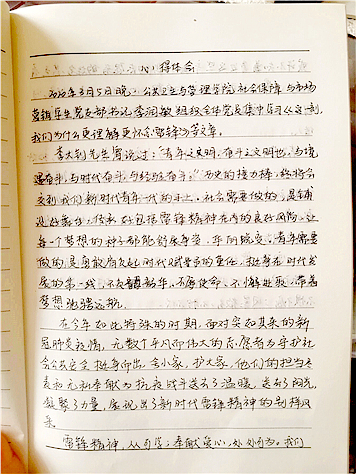 心得体会
2020年3月5日晚，公共卫生与管理学院社会保障与市场
营销学生党支部书记李润敏组织全体党员集中学习《这一刻，
我们为什么更理解更怀念雷锋》等文章。
李大钊先生曾说过："青年之文明，奋斗之文明也，与境
遇奋斗，与时代奋斗，与经验奋斗。"历史的接力棒，终将会
交到我们新时代青年一代的手上。社会需要做的，是铺
设好舞台，传承好包括雷锋精神在内的良好风尚，让
每一个梦想的种子都能舒展年华，东风成交；青年需要
做的，是勇敢肩负起时代赋予的重任，挺身在时代发
展的第一线，不负韶华，不辱使命，不懈进取，带着
梦想驰骋远航。
在今年如此特殊的时期，面对突如其来的新
冠肺炎疫情，无数个平凡而伟大的志愿者为守护社
会公共安全挺身而出，舍小家，护大家，他们的担当与
无私奉献为抗疫战斗送去了温暖，送去了阳光，
凝聚了力量，展现出了新时代雷锋精神的别样风
采。
雷锋精神，从 学，奉献爱心，处处可为。我们